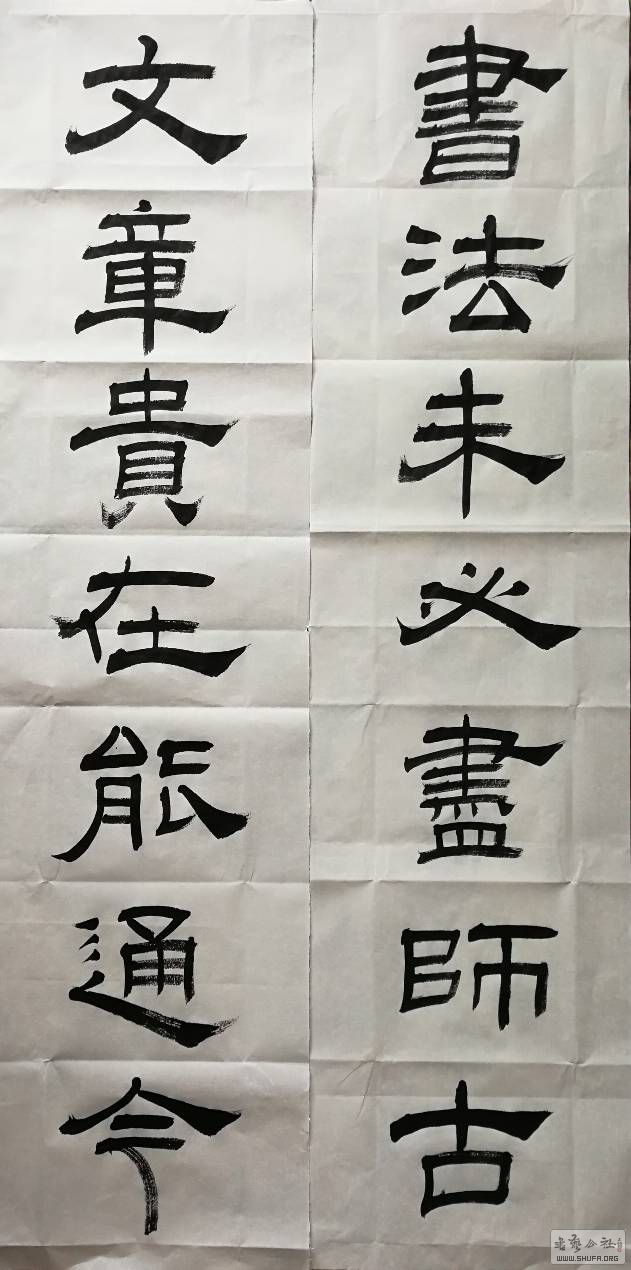 書法未必盡師古
文章貴在能通今
書藝公社
WWW.SHUFA.ORG